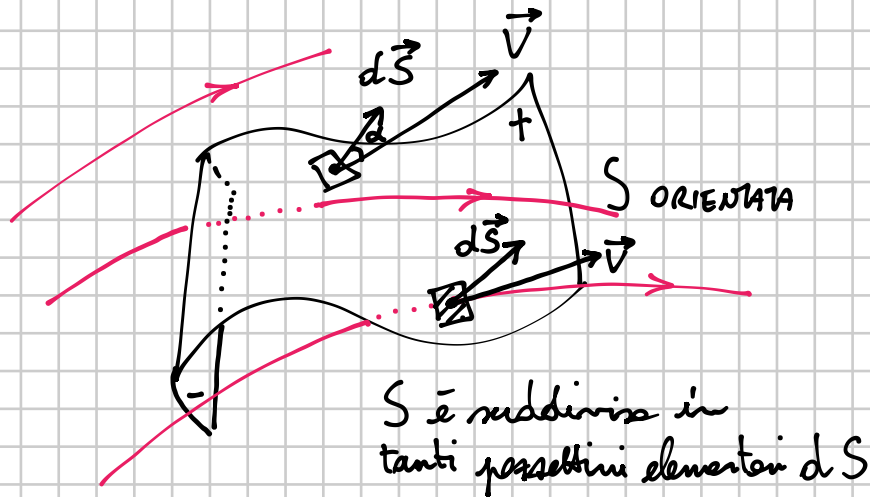 dS⃗
V⃗
α
+
S ORIENTATA
dS⃗
V⃗
-
S è suddivisa in
tanti pezzettini elementari dS